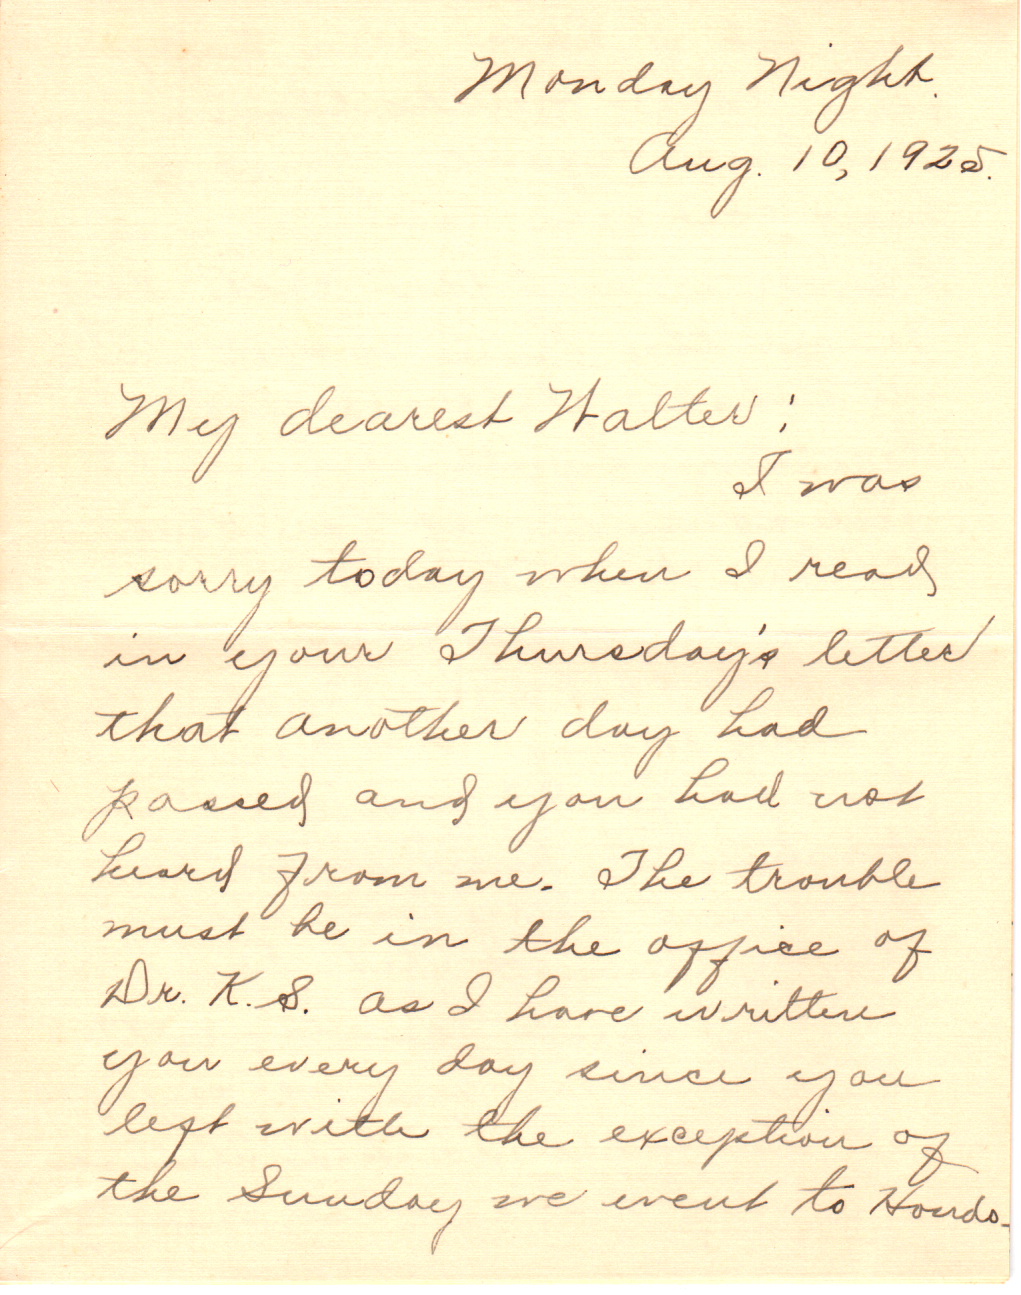 Monday Night.
Aug. 10, 1925.
My dearest Walter:
I was
sorry today when I read
in your Thursday's letter
that another day had
passed and you had not
heard from me. The trouble
must be in the office of
Dr. K.S. as I have written
you every day since you
left with the exception of
the Sunday we went to Hondo.